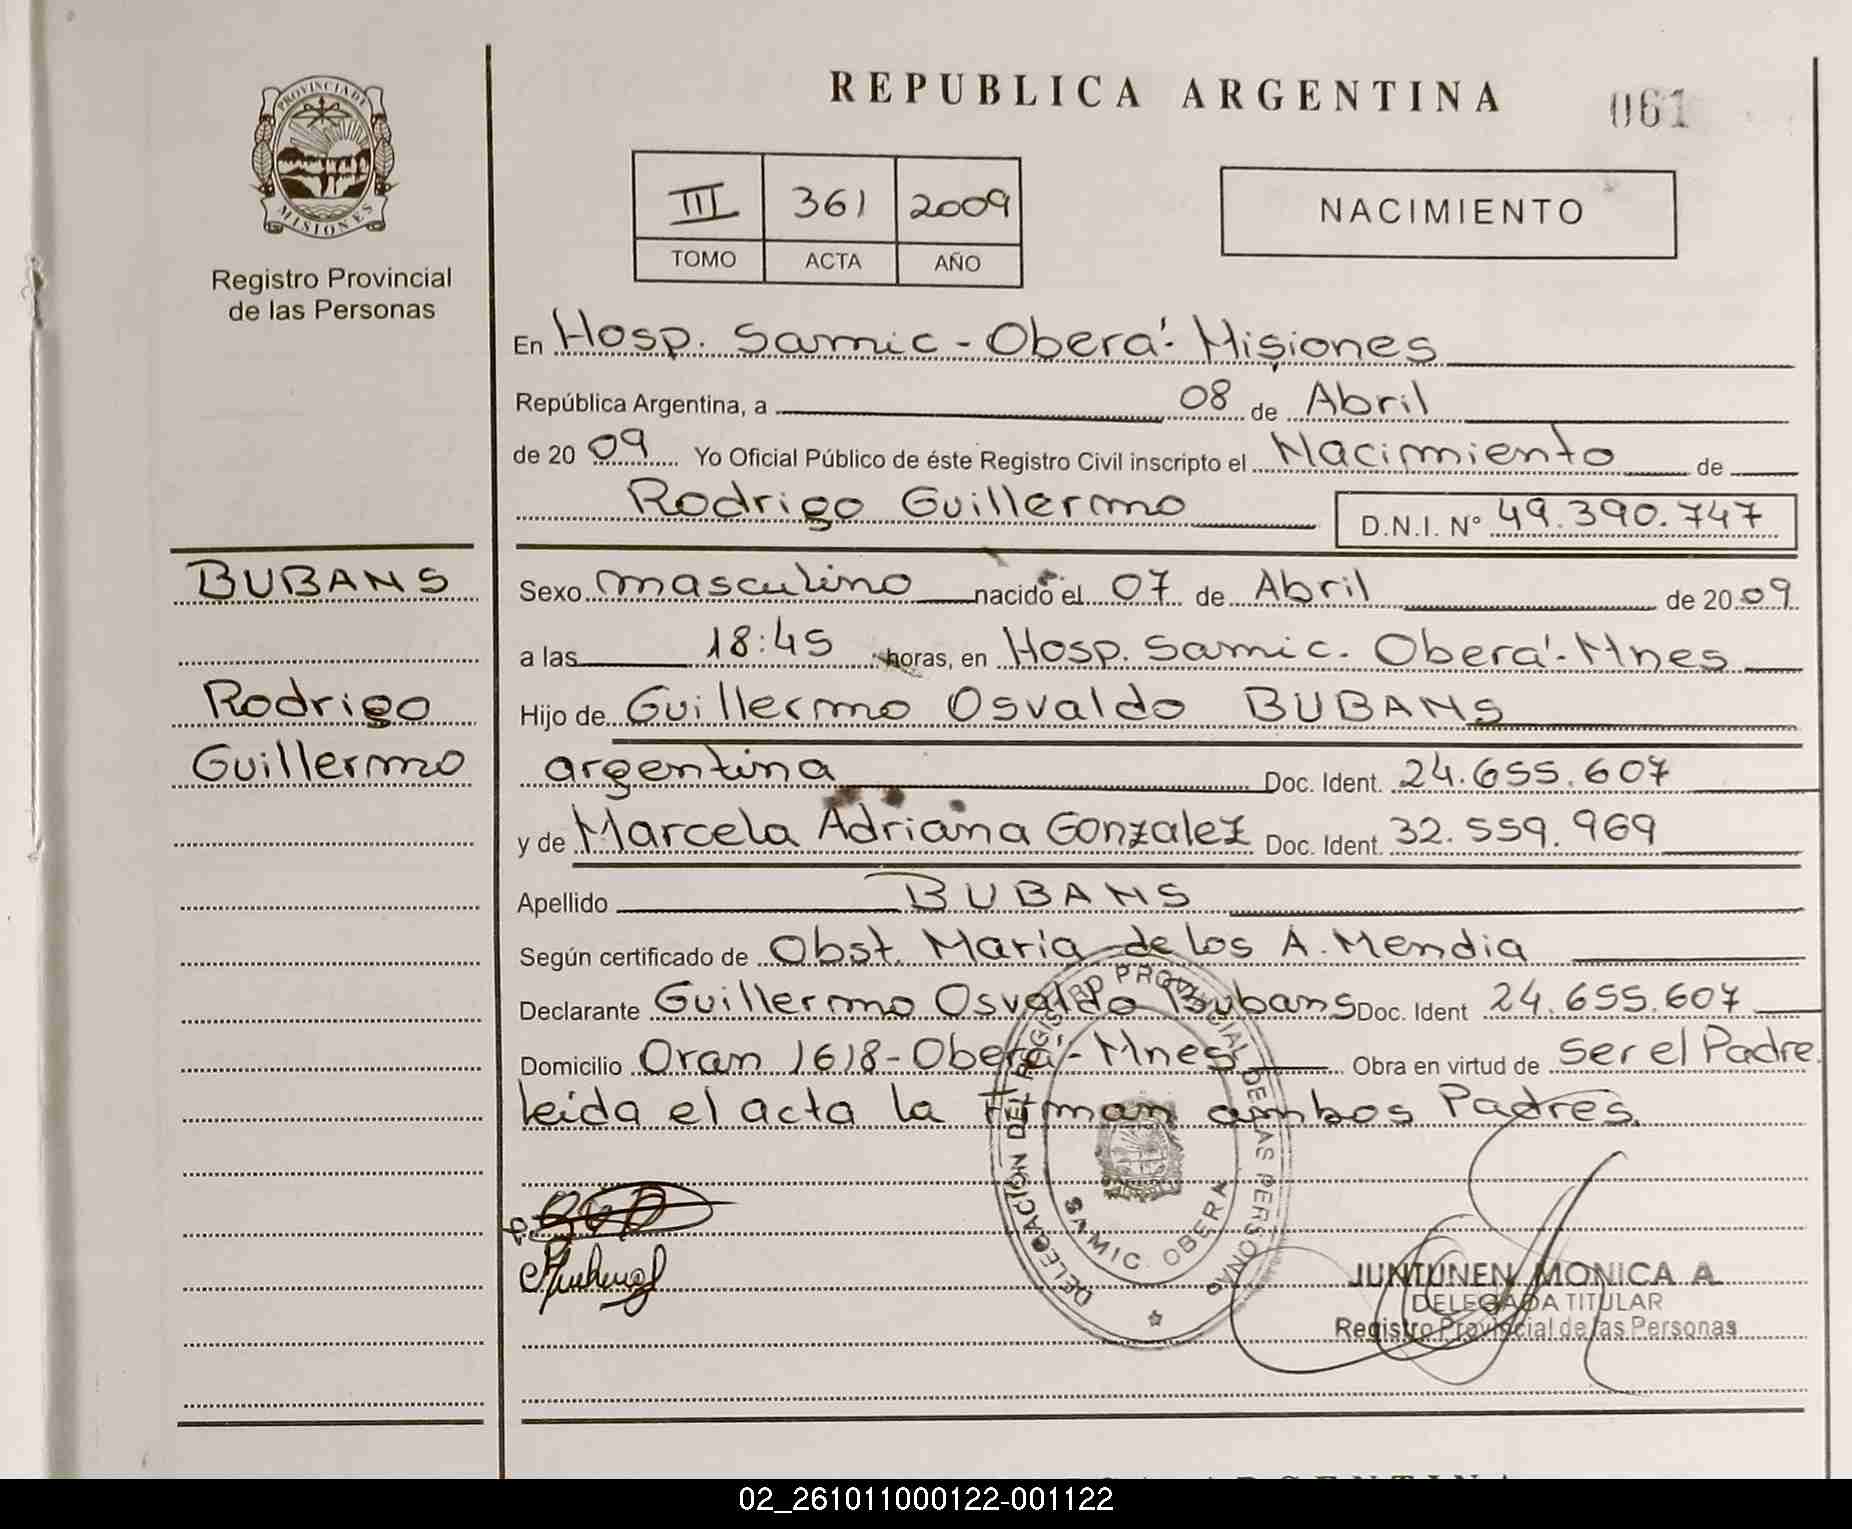 PROVINCIA DE
MISIONES
Registro Provincial
de las Personas
REPUBLICA ARGENTINA
061
III 361 2009
TOMO ACTA AÑO
NACIMIENTO
En Hosp. Samic - Oberá - Misiones
República Argentina, a 08 de Abril
de 2009 Yo Oficial Público de éste Registro Civil inscripto el Nacimiento de
Rodrigo Guillermo D.N.I. Nº 49.390.747
BUBANS
Rodrigo
Guillermo
Sexo masculino nacido el 07 de Abril de 2009
a las 18:45 horas, en Hosp. Samic. Oberá - Mnes
Hijo de Guillermo Osvaldo BUBANS
argentina Doc. Ident. 24.655.607
y de Marcela Adriana Gonzalez Doc. Ident. 32.559.969
Apellido BUBANS
Según certificado de Obst. Maria de los A. Mendia
Declarante Guillermo Osvaldo Bubans Doc. Ident 24.655.607
Domicilio Oran 1618 - Oberá - Mnes Obra en virtud de Ser el Padre.
leida el acta la Firman ambos Padres.
DELEGACIÓN DEL REGISTRO PROVINCIAL DE LAS PERSONAS
SAMIC. OBERA
JUNTUNEN MONICA A.
DELEGADA TITULAR
Registro Provincial de las Personas
02_261011000122-001122